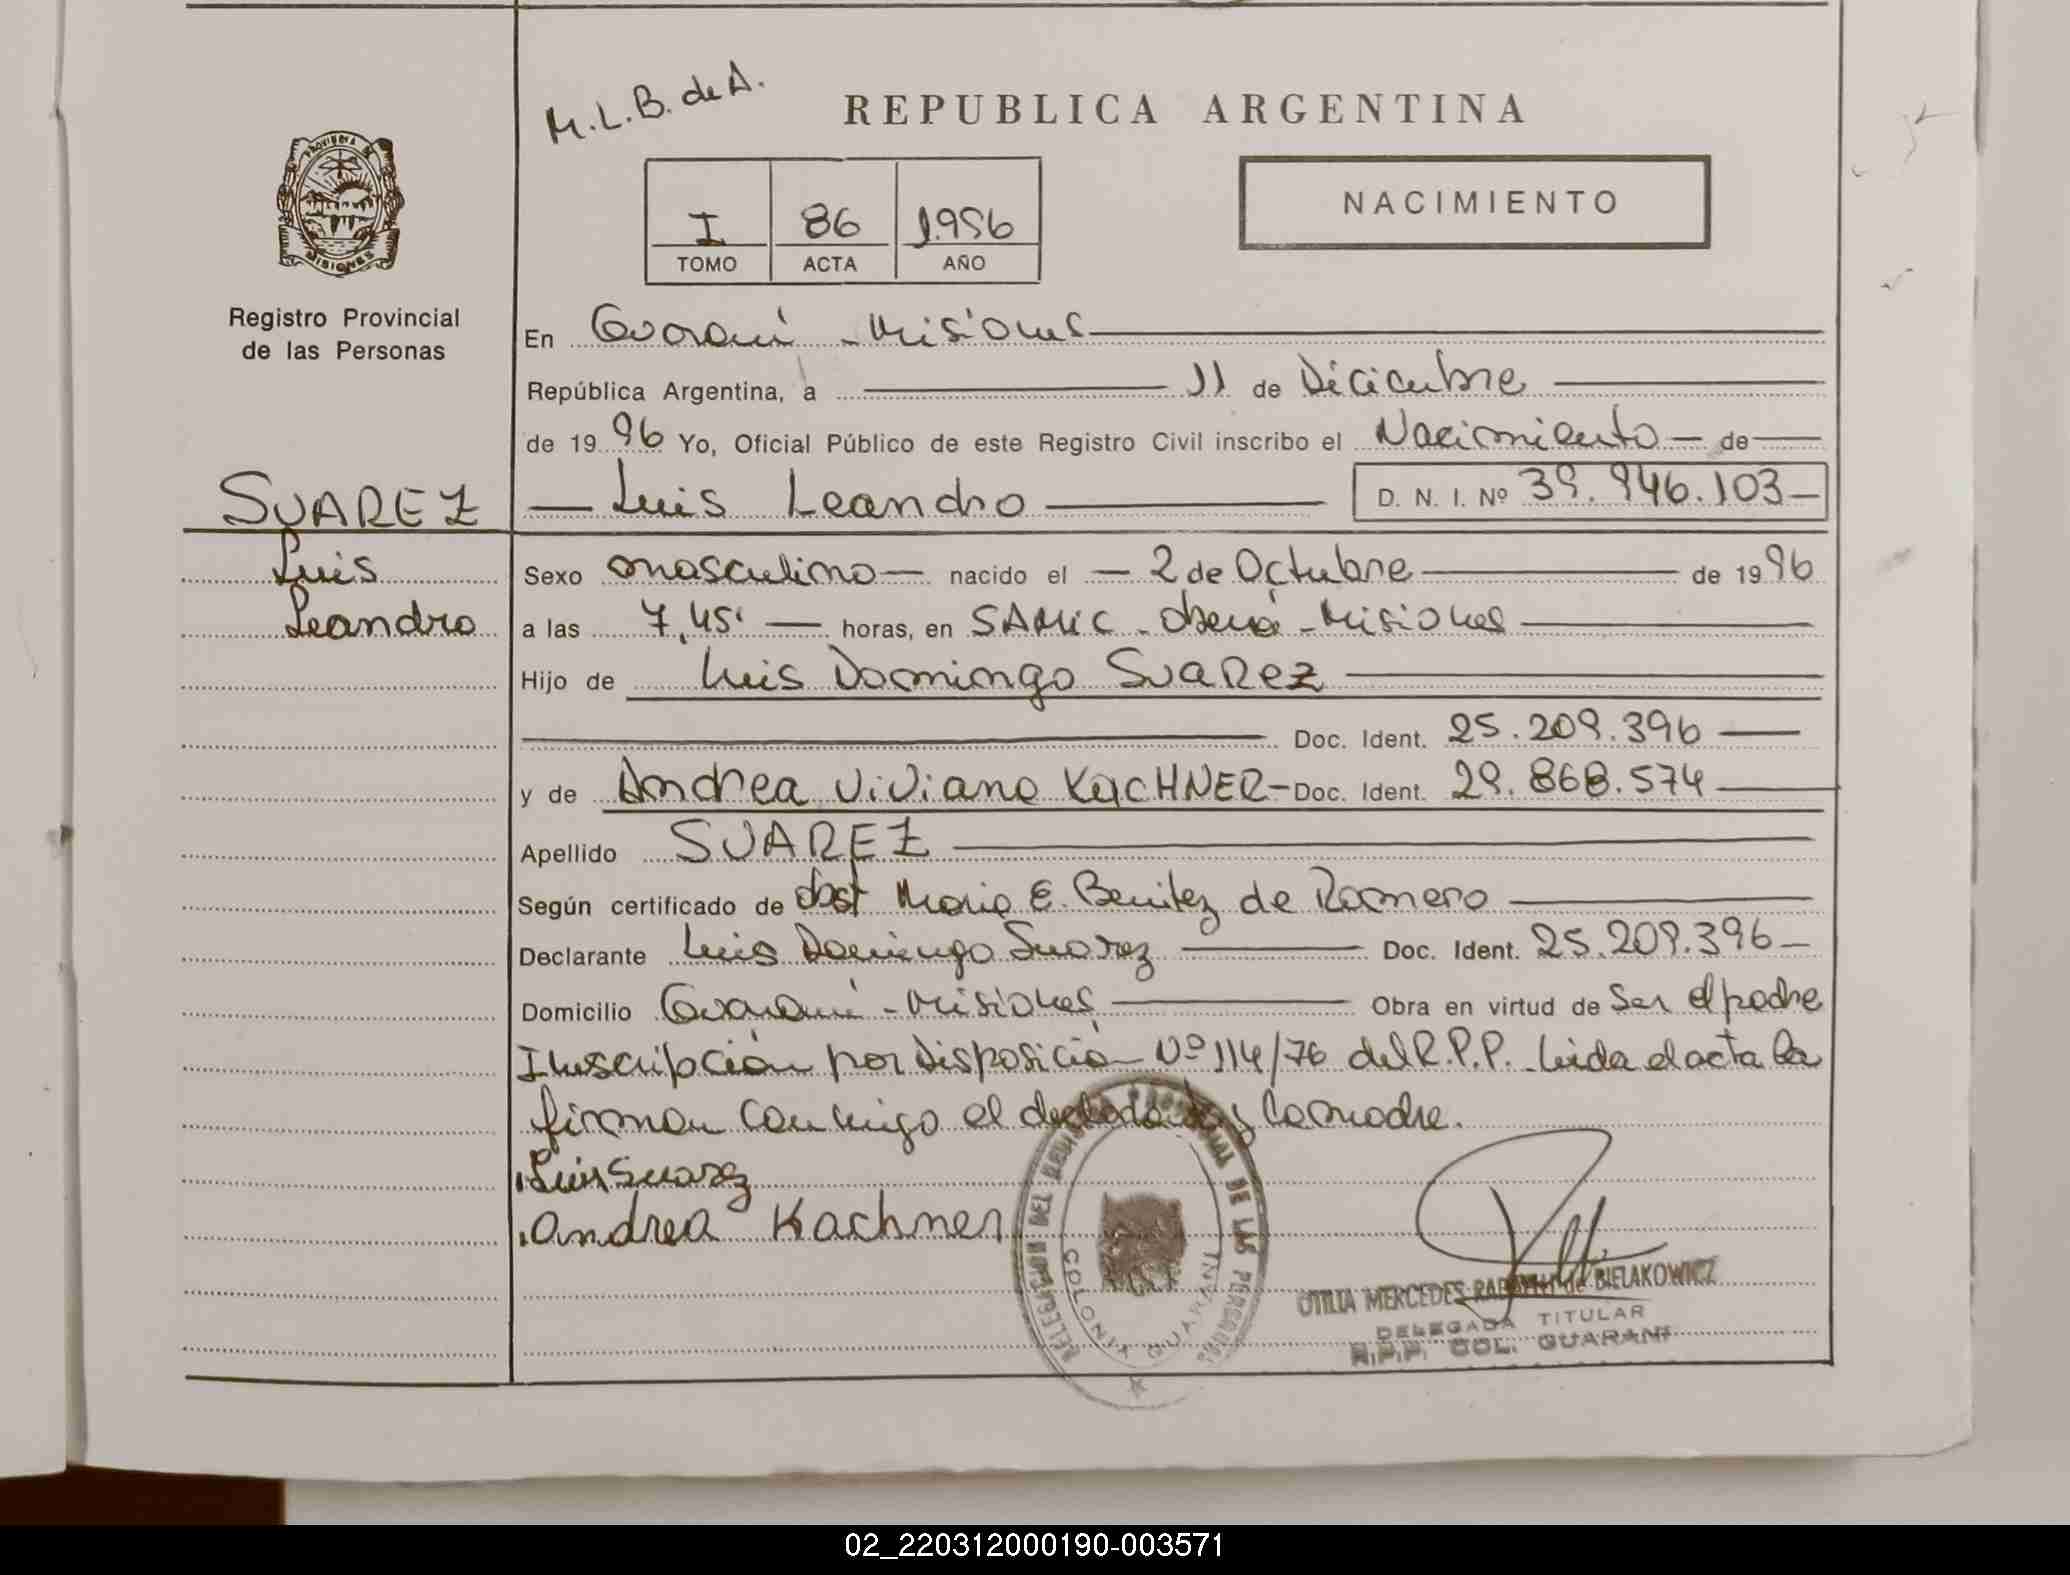 M.L.B. de A.
REPUBLICA ARGENTINA
PROVINCIA DE
MISIONES
I 86 1.996
TOMO ACTA AÑO
NACIMIENTO
Registro Provincial
de las Personas
En Guaraní - Misiones
República Argentina, a 11 de Diciembre
de 19 96 Yo, Oficial Público de este Registro Civil inscribo el Nacimiento de
SUAREZ
Luis Leandro D. N. I. Nº 39.946.103
Luis
Leandro
Sexo masculino nacido el 2 de Octubre de 19 96
a las 7,45' horas, en SAMIC - Oberá - Misiones
Hijo de Luis Domingo SuaRez
Doc. Ident. 25.209.396
y de Andrea Viviana KaCHNER - Doc. Ident. 29.868.574
Apellido SUAREZ
Según certificado de obst Maria E. Benitez de Romero
Declarante Luis Domingo Suarez Doc. Ident. 25.209.396
Domicilio Guaraní - Misiones Obra en virtud de Ser el padre
Inscripción por Disposición Nº 114/76 del R.P.P. Leida el acta la
firman conmigo el declarante y la madre.
Luis Suarez
Andrea Kachner
DELEGACION DEL REGISTRO PROVINCIAL DE LAS PERSONAS
COLONIA GUARANI
OTILIA MERCEDES de BIELAKOWICZ
DELEGADA TITULAR
R.P.P. COL. GUARANI
02_220312000190-003571